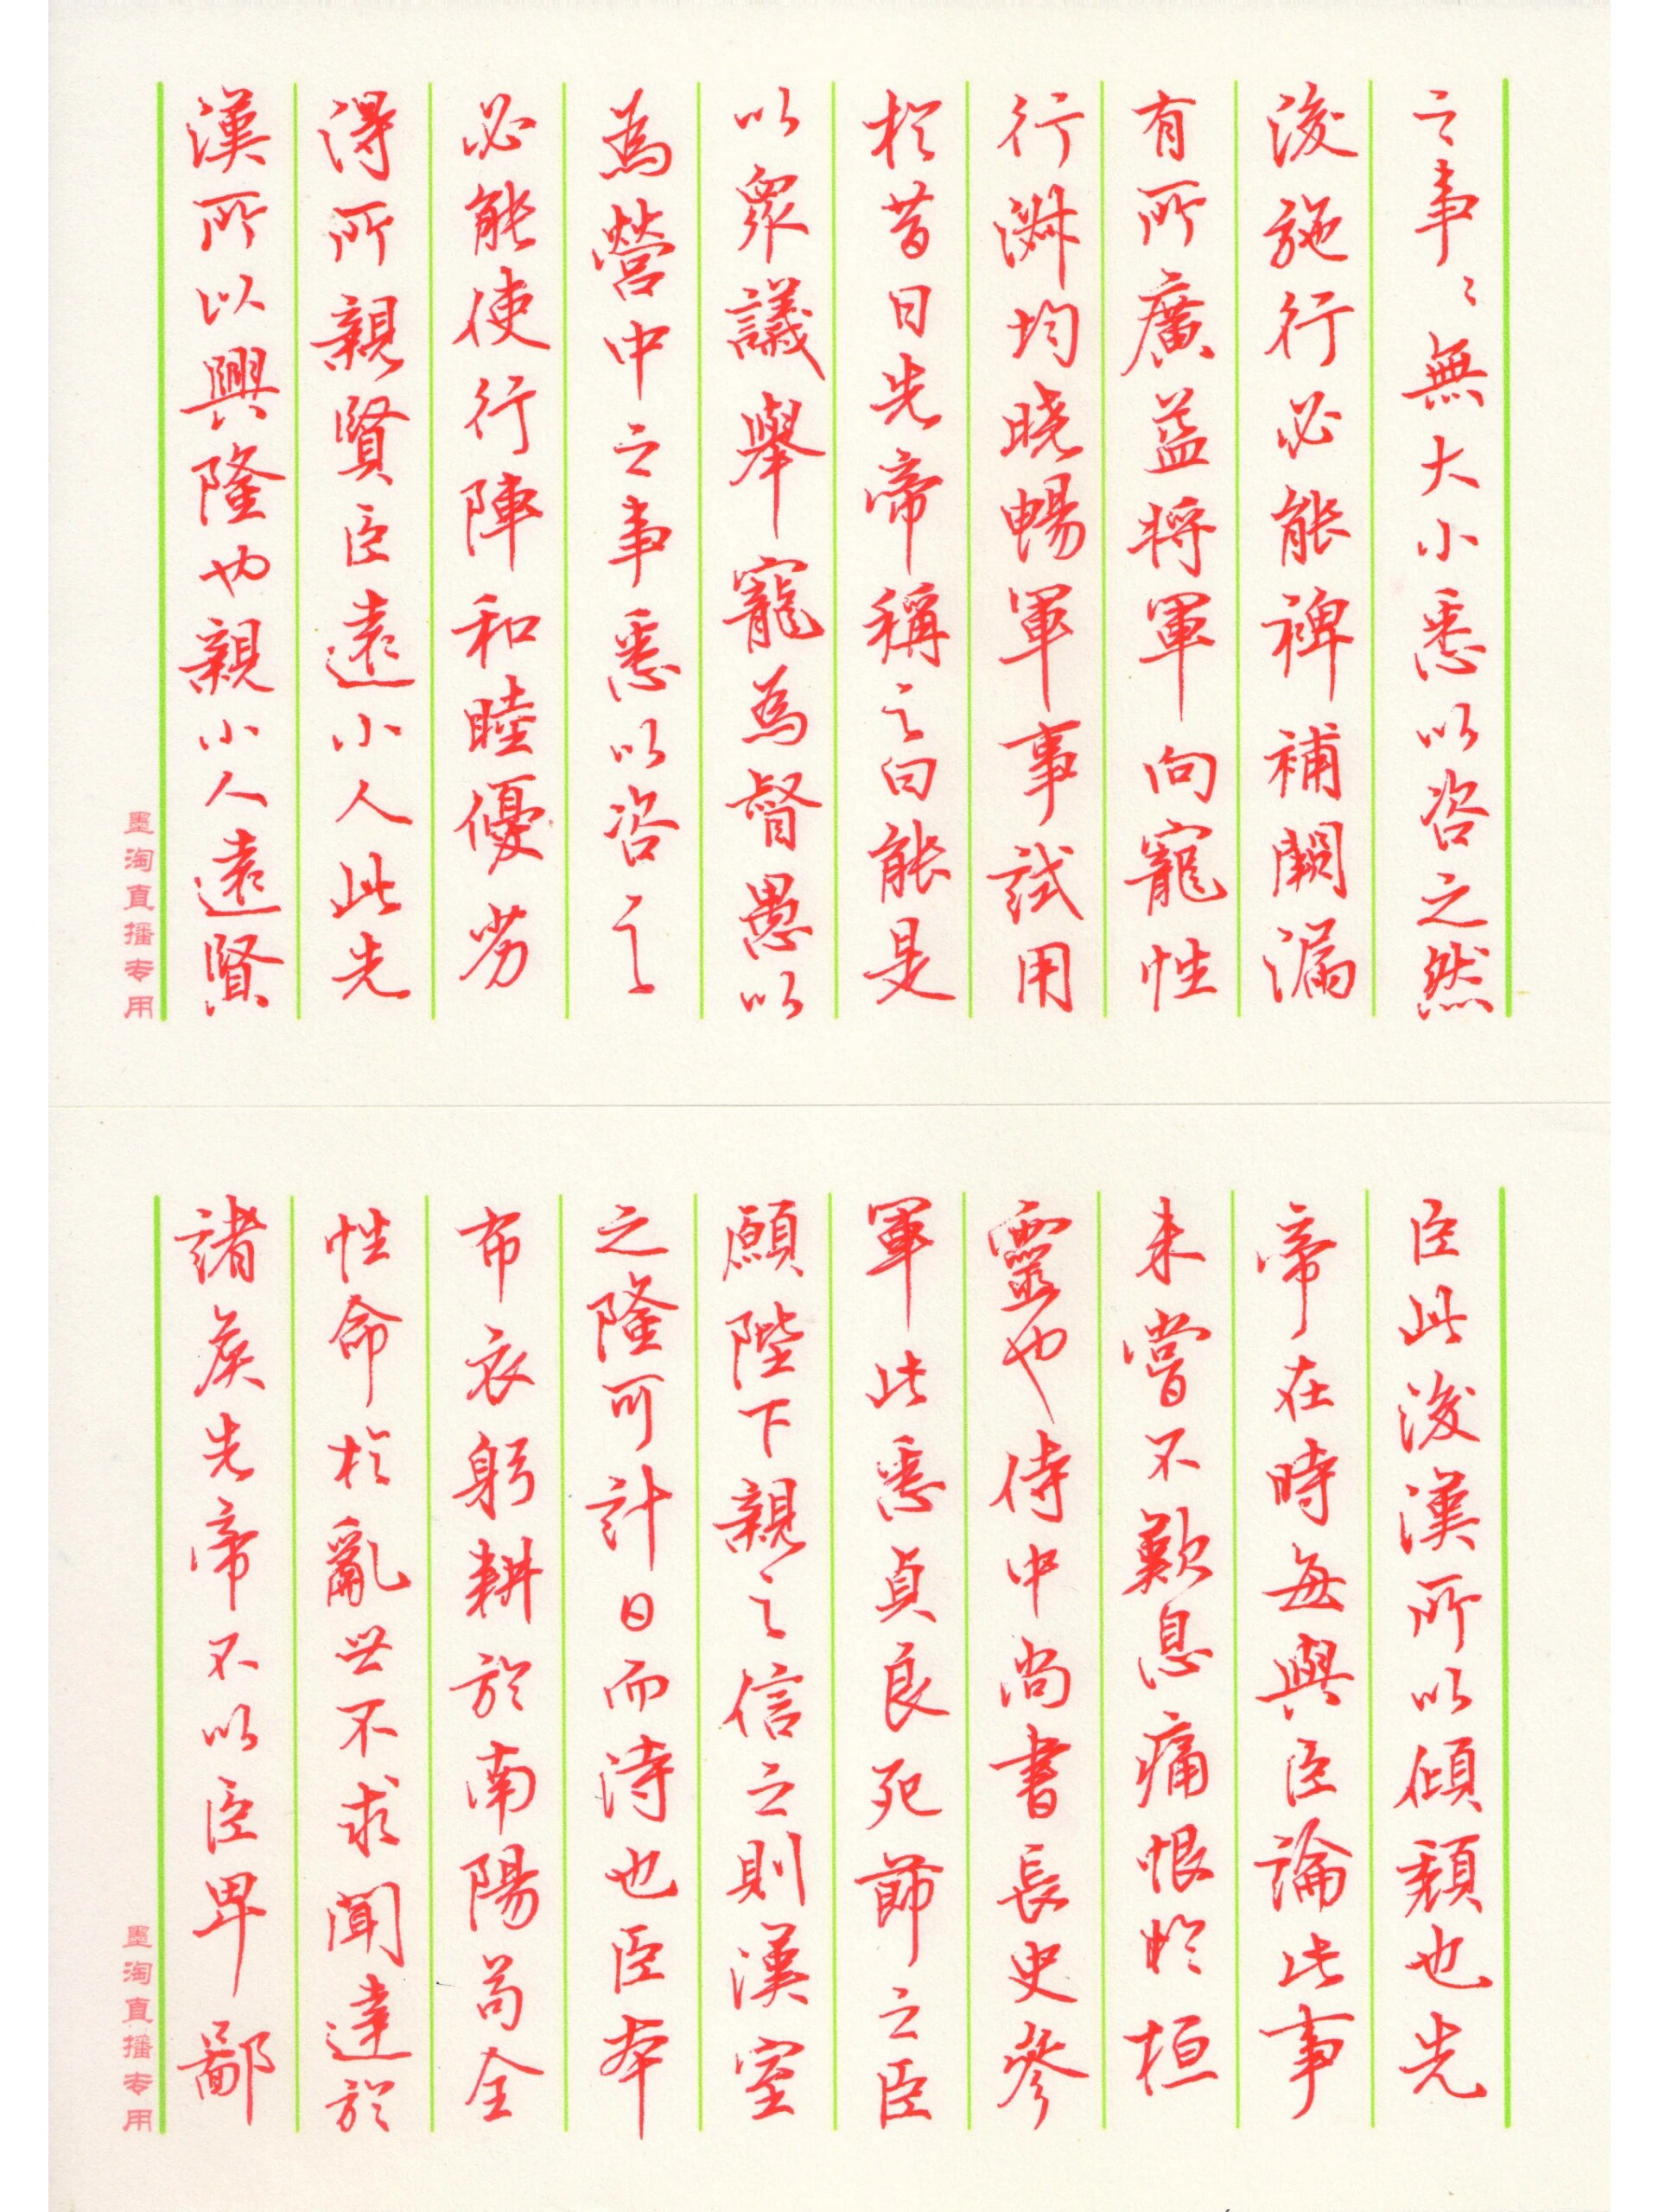 之事〻無大小悉以咨之然
後施行必能裨補闕漏
有所廣益将軍向寵性
行淑均晓暢軍事試用
於昔日先帝稱之曰能是
以衆議舉寵為督愚以
為營中之事悉以咨之
必能使行陣和睦優劣
得所親賢臣遠小人此先
漢所以興隆也親小人遠賢
墨淘直播专用
臣此後漢所以傾頹也先
帝在時每與臣論此事
未嘗不歎息痛恨於桓
靈也侍中尚書長史參
軍此悉貞良死節之臣
願陛下親之信之則漢室
之隆可計日而待也臣本
布衣躬耕於南陽苟全
性命於亂世不求聞達於
諸侯先帝不以臣卑鄙
墨淘直播专用